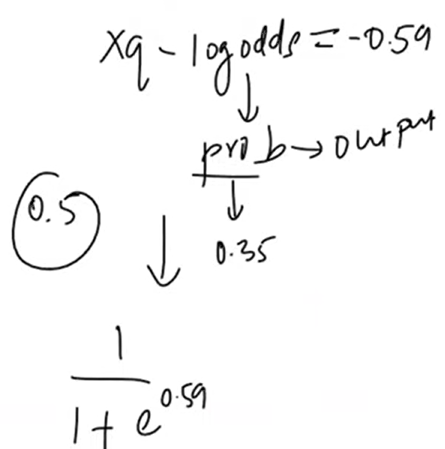 xq - log odds = -0.59
prob → output
0.5
0.35
1
1 + e^0.59